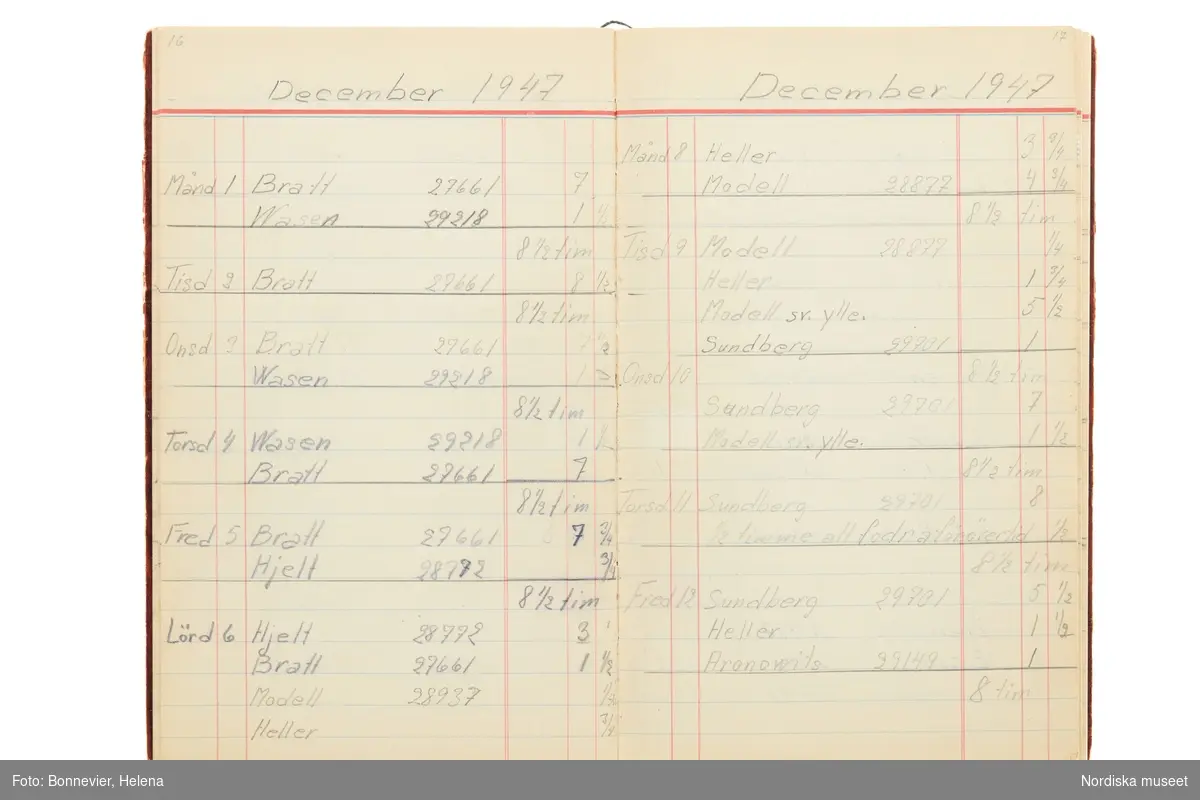 16
December 1947
Månd 1 Bratt 27661 7
Wasen 29218 1 1/2
8 1/2 tim
Tisd 2 Bratt 27661 8 1/2
8 1/2 tim
Onsd 3 Bratt 27661 1/2
Wasen 29218 1
8 1/2 tim
Torsd 4 Wasen 29218 1 1/2
Bratt 27661 7
8 1/2 tim
Fred 5 Bratt 27661 7 3/4
Hjelt 28772 3/4
8 1/2 tim
Lörd 6 Hjelt 28772 3
Bratt 27661 1 1/2
Modell 28937
Heller 3/4
17
December 1947
Månd 8 Heller 3 3/4
Modell 28877 4 3/4
8 1/2 tim
Tisd 9 Modell 28877 1/4
Heller 1 3/4
Modell sv. ylle. 5 1/2
Sundberg 29701 1
8 1/2 tim
Onsd 10
Sundberg 29701 7
Modell sv. ylle. 1 1/2
8 1/2 tim
Torsd 11 Sundberg 29701 8
1/2 timme att 1/2
8 1/2 tim
Fred 12 Sundberg 29701 5 1/2
Heller 1 1/2
Aronowits 29149 1
8 tim
Foto: Bonnevier, Helena
Nordiska museet